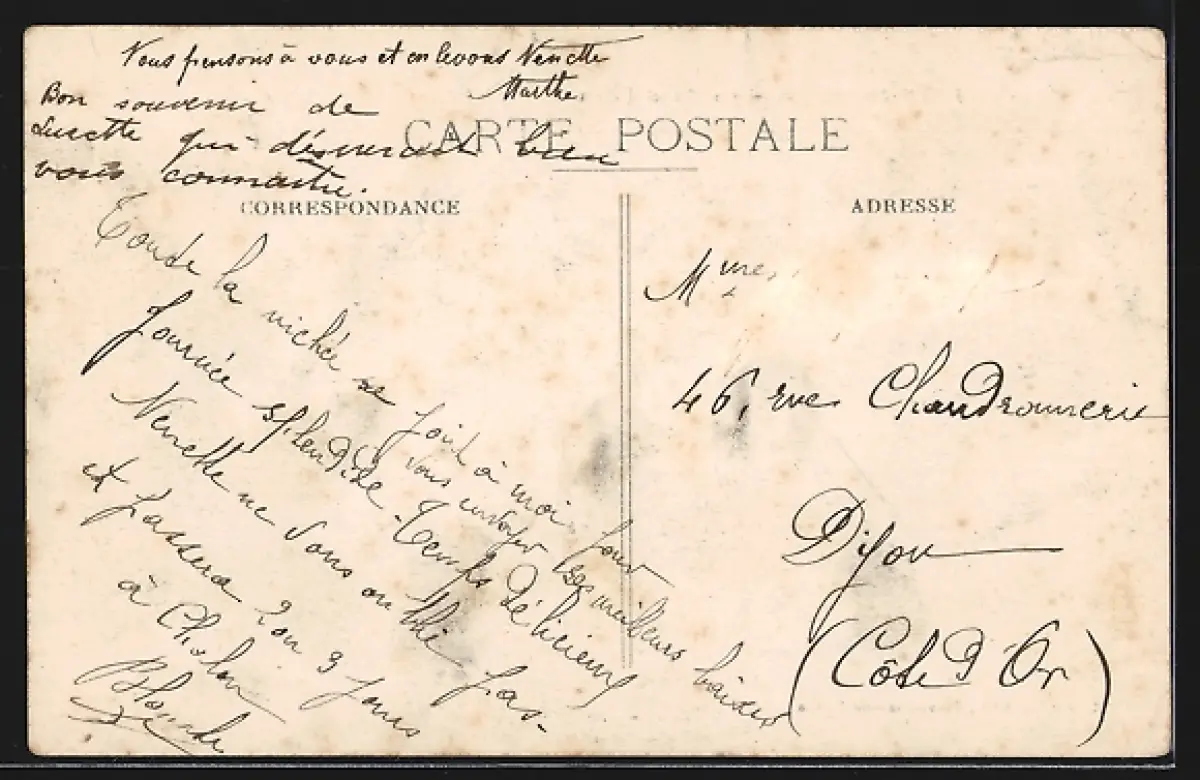 Nous pensons à vous et enlevons Nenette
Marthe.
Bon souvenir de
Lucette qui désirerait bien
vous connaître.
CARTE POSTALE
CORRESPONDANCE
Toute la nichée se joint à moi pour
vous envoyer ses meilleurs baisers
Journée splendide. Temps délicieux
Nenette ne vous oublie pas-
et passera 2 ou 3 jours
à Chalon
Blanche
ADRESSE
Mme
46, rue Chaudronnerie
Dijon
(Côte d'Or)